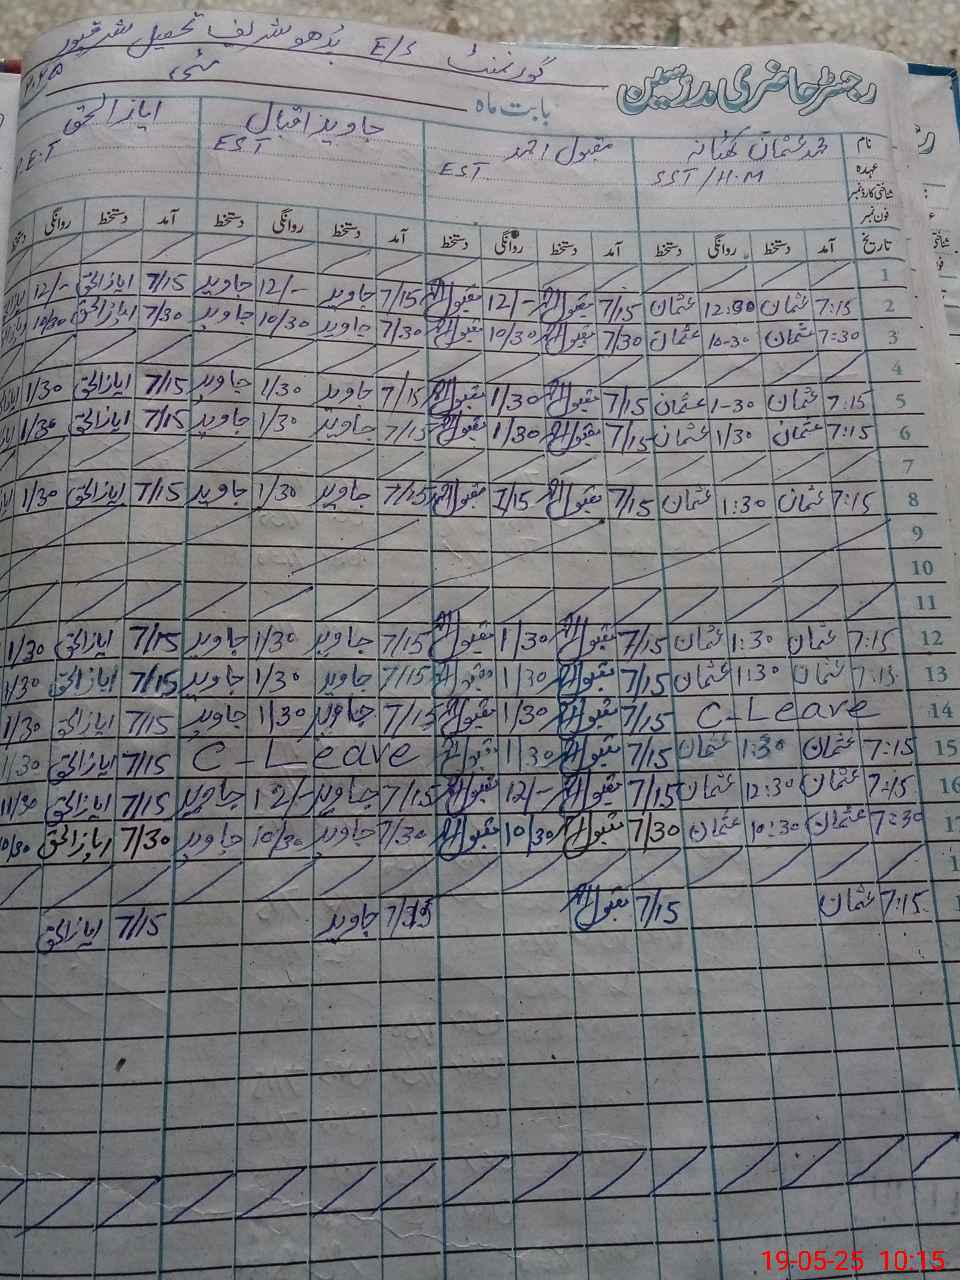 گورنمنٹ E/S بُدھو شریف تحصیل شرقپور
رجسٹر حاضری مدرسین بابت ماہ مئی ۲۰۲۵
نام محمد عثمان مقبول احمد جاوید اقبال ایاز الحق
عہدہ SST/H.M EST EST P.E.T
شناختی کارڈ نمبر
فون نمبر
تاریخ آمد دستخط روانگی دستخط آمد دستخط روانگی دستخط آمد دستخط روانگی دستخط آمد دستخط روانگی دستخط
1
2 7:15 عثمان 12:30 عثمان 7/15 مقبول احمد 12/- مقبول احمد 7/15 جاوید 12/- جاوید 7/15 ایاز الحق 12/-
3 7:30 عثمان 10-30 عثمان 7/30 مقبول احمد 10/30 مقبول احمد 7/30 جاوید 10/30 جاوید 7/30 ایاز الحق 10/30
4
5 7:15 عثمان 1-30 عثمان 7/15 مقبول احمد 1/30 مقبول احمد 7/15 جاوید 1/30 جاوید 7/15 ایاز الحق 1/30
6 7:15 عثمان 1/30 عثمان 7/15 مقبول احمد 1/30 مقبول احمد 7/15 جاوید 1/30 جاوید 7/15 ایاز الحق 1/30
7
8 7:15 عثمان 1:30 عثمان 7/15 مقبول احمد 7/15 مقبول احمد 7/15 جاوید 1/30 جاوید 7/15 ایاز الحق 1/30
9
10
11
12 7:15 عثمان 1:30 عثمان 7/15 مقبول احمد 1/30 مقبول احمد 7/15 جاوید 1/30 جاوید 7/15 ایاز الحق 1/30
13 7:15 عثمان 1:30 عثمان 7/15 مقبول احمد 1/30 مقبول احمد 7/15 جاوید 1/30 جاوید 7/15 ایاز الحق 1/30
14 C-Leave 7/15 مقبول احمد 1/30 مقبول احمد 7/15 جاوید 1/30 جاوید 7/15 ایاز الحق 1/30
15 7:15 عثمان 1:30 عثمان 7/15 مقبول احمد 1/30 مقبول احمد C-Leave 7/15 ایاز الحق 1/30
16 7:15 عثمان 12:30 عثمان 7/15 مقبول احمد 12/- مقبول احمد 7/15 جاوید 12/- جاوید 7/15 ایاز الحق 11/30
17 7:30 عثمان 10:30 عثمان 7/30 مقبول احمد 10/30 مقبول احمد 7/30 جاوید 10/30 جاوید 7/30 ایاز الحق 10/30
1
1 7:15 عثمان 7/15 مقبول احمد 7/15 جاوید 7/15 ایاز الحق
19-05-25 10:15